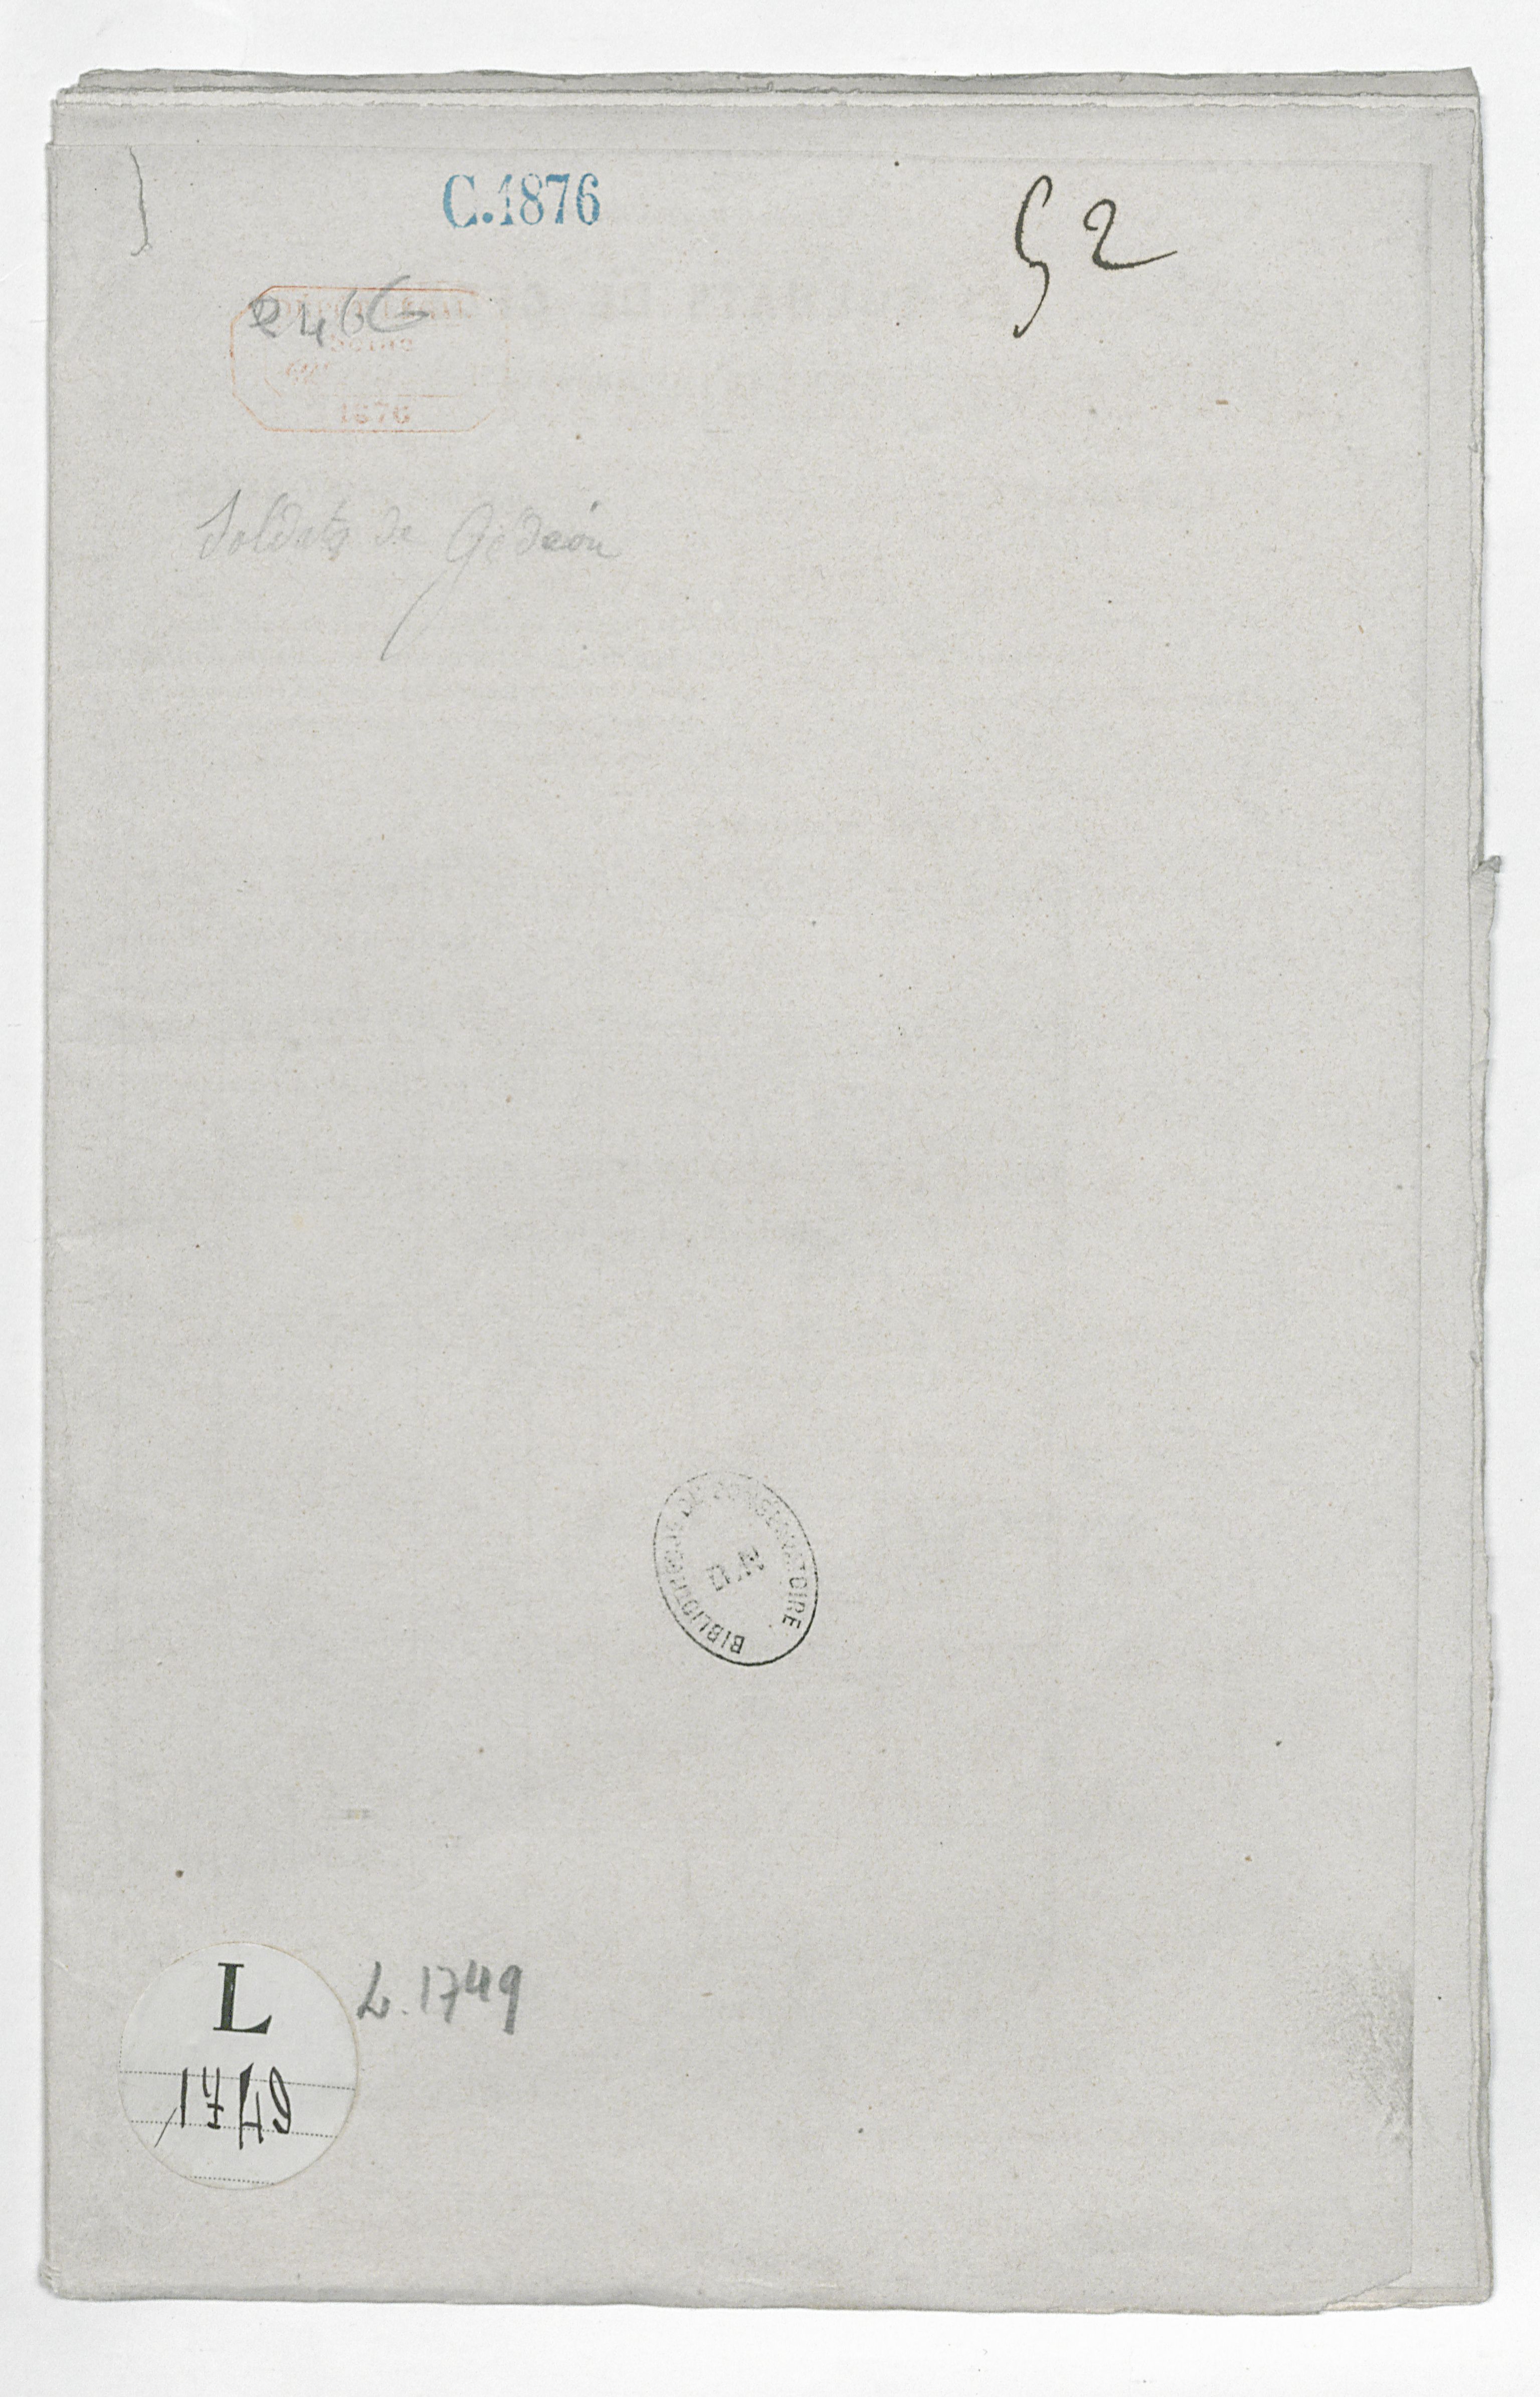 C.1876
52
2466
DÉPÔT LÉGAL
Seine
1876
Soldats de Gédéon
BIBLIOTHÈQUE DE CONSERVATOIRE
L. 1749
L
1749